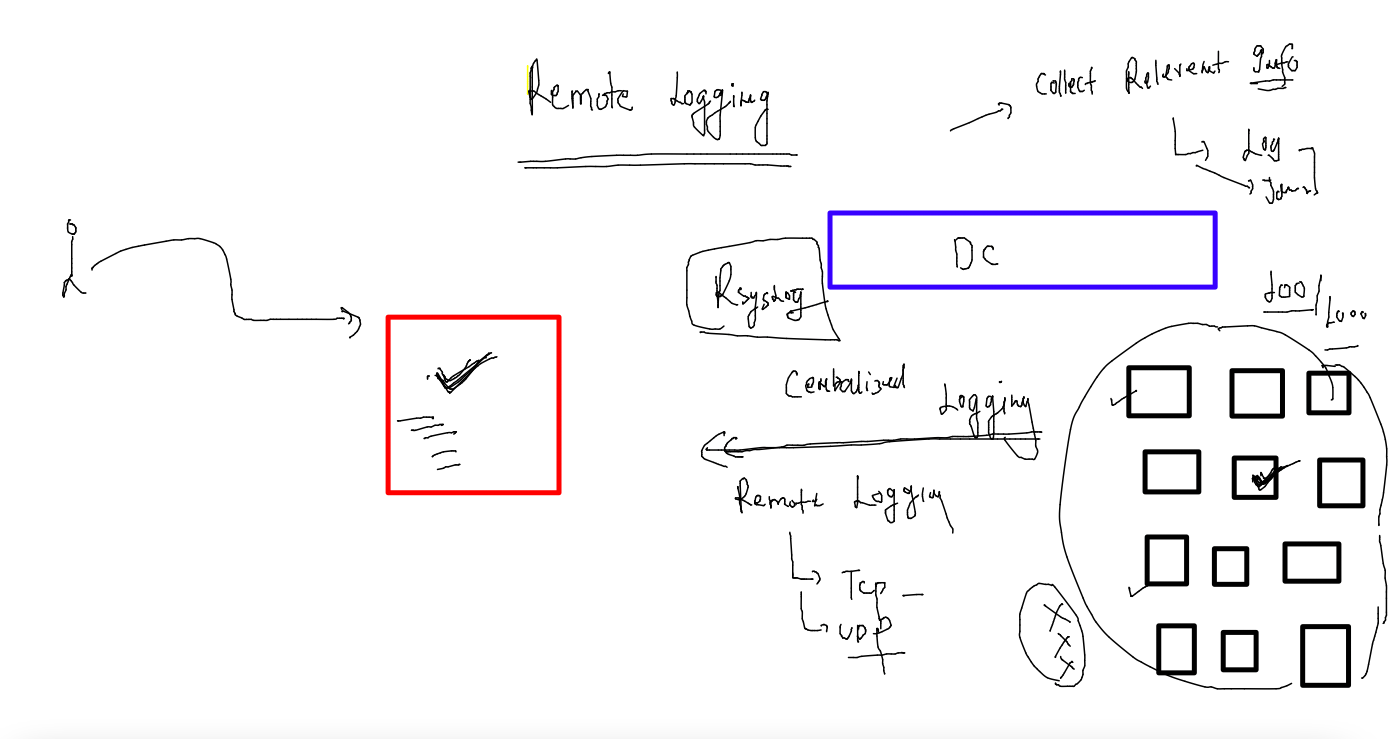 Remote Logging
Collect Relevent Info
Log
DC
Rsyslog
100/1000
Centralized
Logging
Remote Logging
TCP
UDP
X
X
X